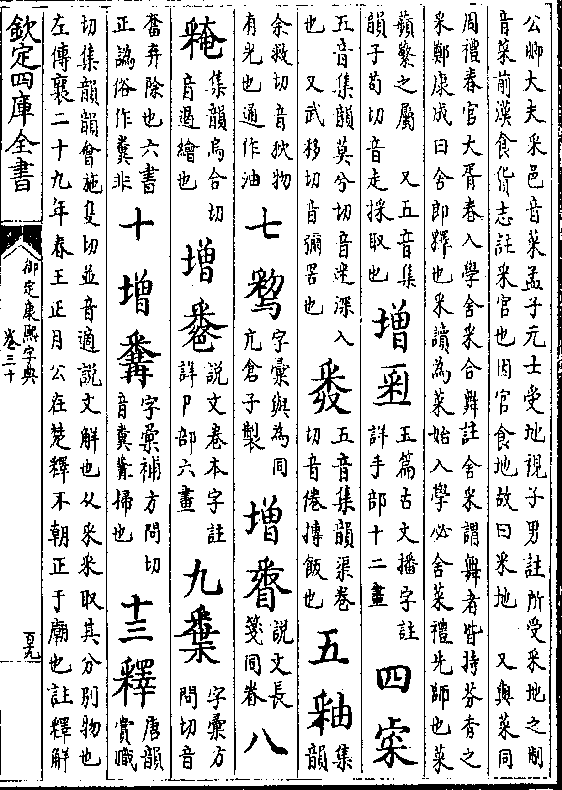 公卿大夫采邑音菜孟子元士受地視子男註所受采地之制
音菜前漢食貨志註采官也因官食地故曰采地　又與菜同
周禮春官大胥春入學舍采合舞註舍采謂舞者皆持芬香之
采鄭康成曰舍即釋也采讀為菜始入學必舍菜禮先師也菜
蘋蘩之屬　又五音集
韻子苟切音走採取也
增
玉篇古文播字註
詳手部十二畫
四
五音集韻莫兮切音迷深入
也　又武移切音彌罟也
五音集韻渠卷
切音倦摶飯也
五
釉
集
韻
余救切音狖物
有光也通作油
七
字彙與為同
亢倉子製
增
說文長
箋同番
八
集韻烏合切
音遏繪也
增
說文卷本字註
詳卩部六畫
九
字彙方
問切音
奮弃除也六書
正譌俗作糞非
十
增
字彙補方問切
音糞糞掃也
十三
釋
唐韻
賞職
切集韻韻會施隻切並音適說文解也从釆釆取其分別物也
左傳襄二十九年春王正月公在楚釋不朝正于廟也註釋解
欽定四庫全書
御定康熙字典
卷三十